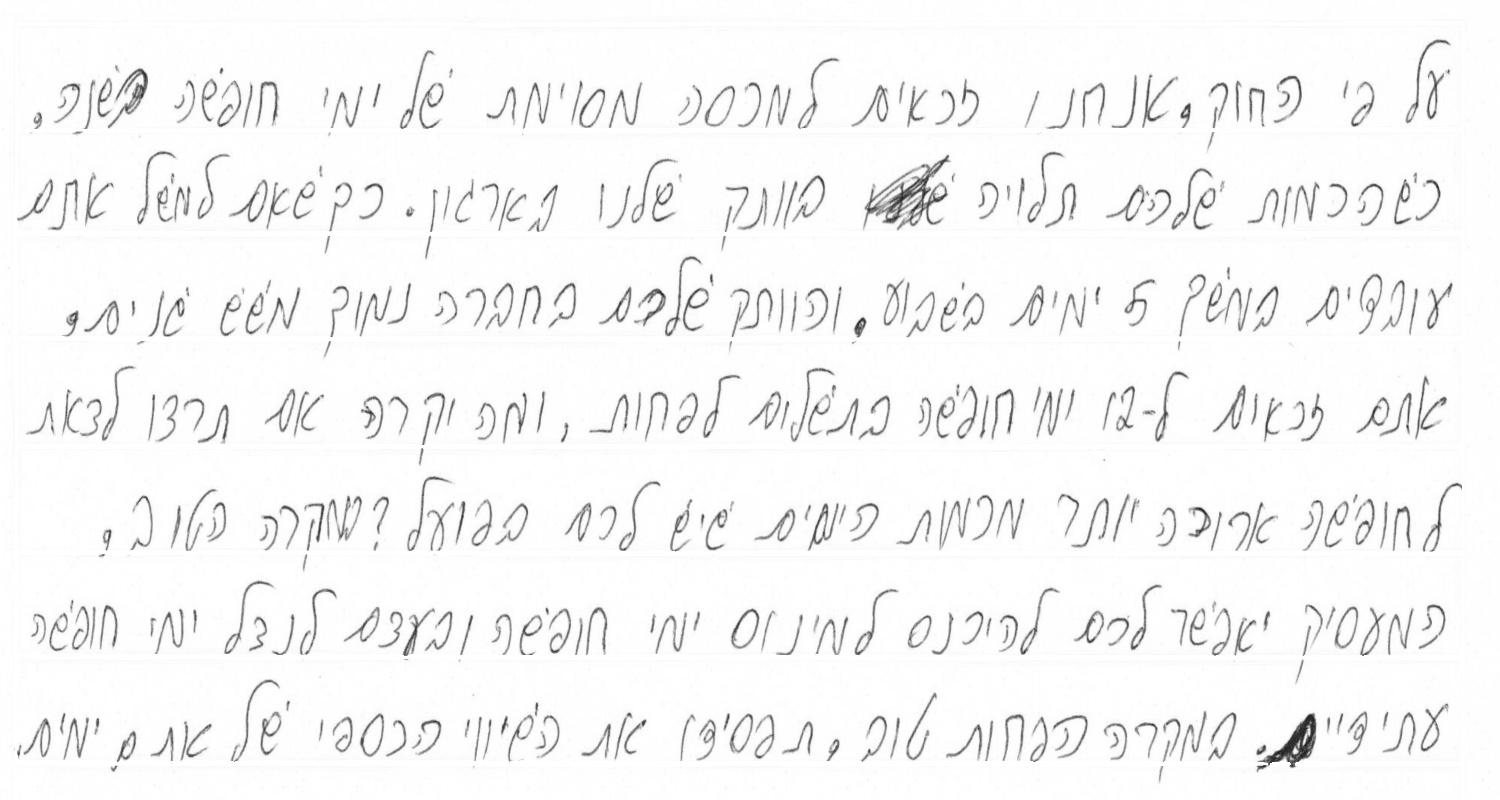 על פי החוק, אנחנו זכאים למכסה מסוימת של ימי חופשה בשנה,
כשהכמות שלהם תלויה בוותק שלנו בארגון. כך שאם למשל אתם
עובדים במשך 5 ימים בשבוע, והוותק שלכם בחברה נמוך משש שנים,
אתם זכאים ל-12 ימי חופשה בתשלום לפחות, ומה יקרה אם תרצו לצאת
לחופשה ארוכה יותר מכמות הימים שיש לכם בפועל? במקרה הטוב,
המעסיק יאפשר לכם להיכנס למינוס ימי חופשה ובעצם לנצל ימי חופשה
עתידיים. במקרה הפחות טוב, תפסידו את השיווי הכספי של אתם ימים.